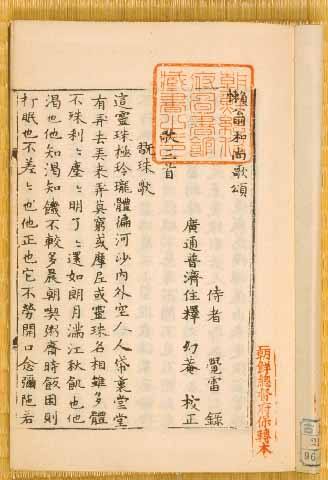 懶翁和尚歌頌
侍者 覺雷 錄
廣通普濟住釋 幻菴 校正
歌三首
翫珠歌
這靈珠極玲瓏體徧河沙內外空人人帒裏堂堂
有弄去弄來弄莫窮或摩尼或靈珠名相雖多體
不殊刹〻塵〻明了〻還如朗月滿江秋飢也他
渴也他知渴知飢不較多晨朝喫粥齋時飯困則
打眠也不差〻也他正也它不勞開口念彌陁若
朝鮮總督府圖書館藏書之印
朝鮮總督府
古
2
96